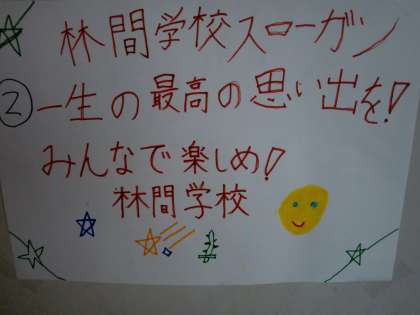 林間学校スローガン
②一生の最高の思い出を!
みんなで楽しめ!
林間学校